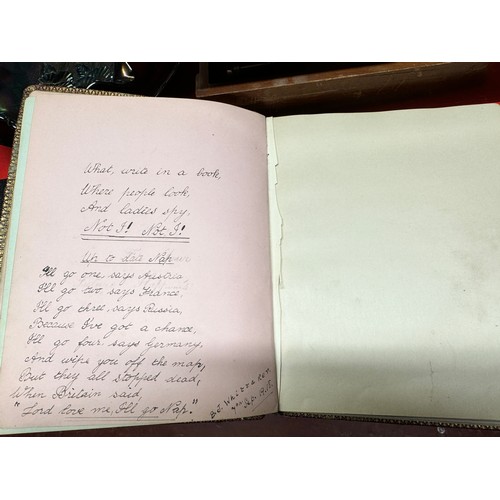 What, write in a book,
Where people look,
And ladies spy.
Not I! Not I!
Up to Nap
I'll go one, says Austria,
I'll go two says France,
I'll go three, says Russia,
Because I've got a chance,
I'll go four says Germany,
And wipe you off the map,
But they all stopped dead,
When Britain said,
"Lord love me, I'll go Nap."
4th Sep. 1915